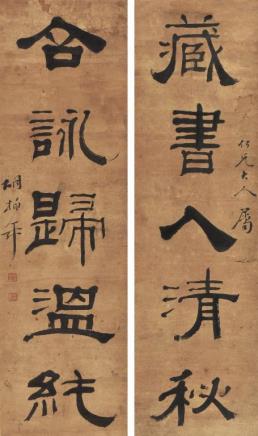 藏書入清秘
兄大人屬
合詠歸溫純
胡